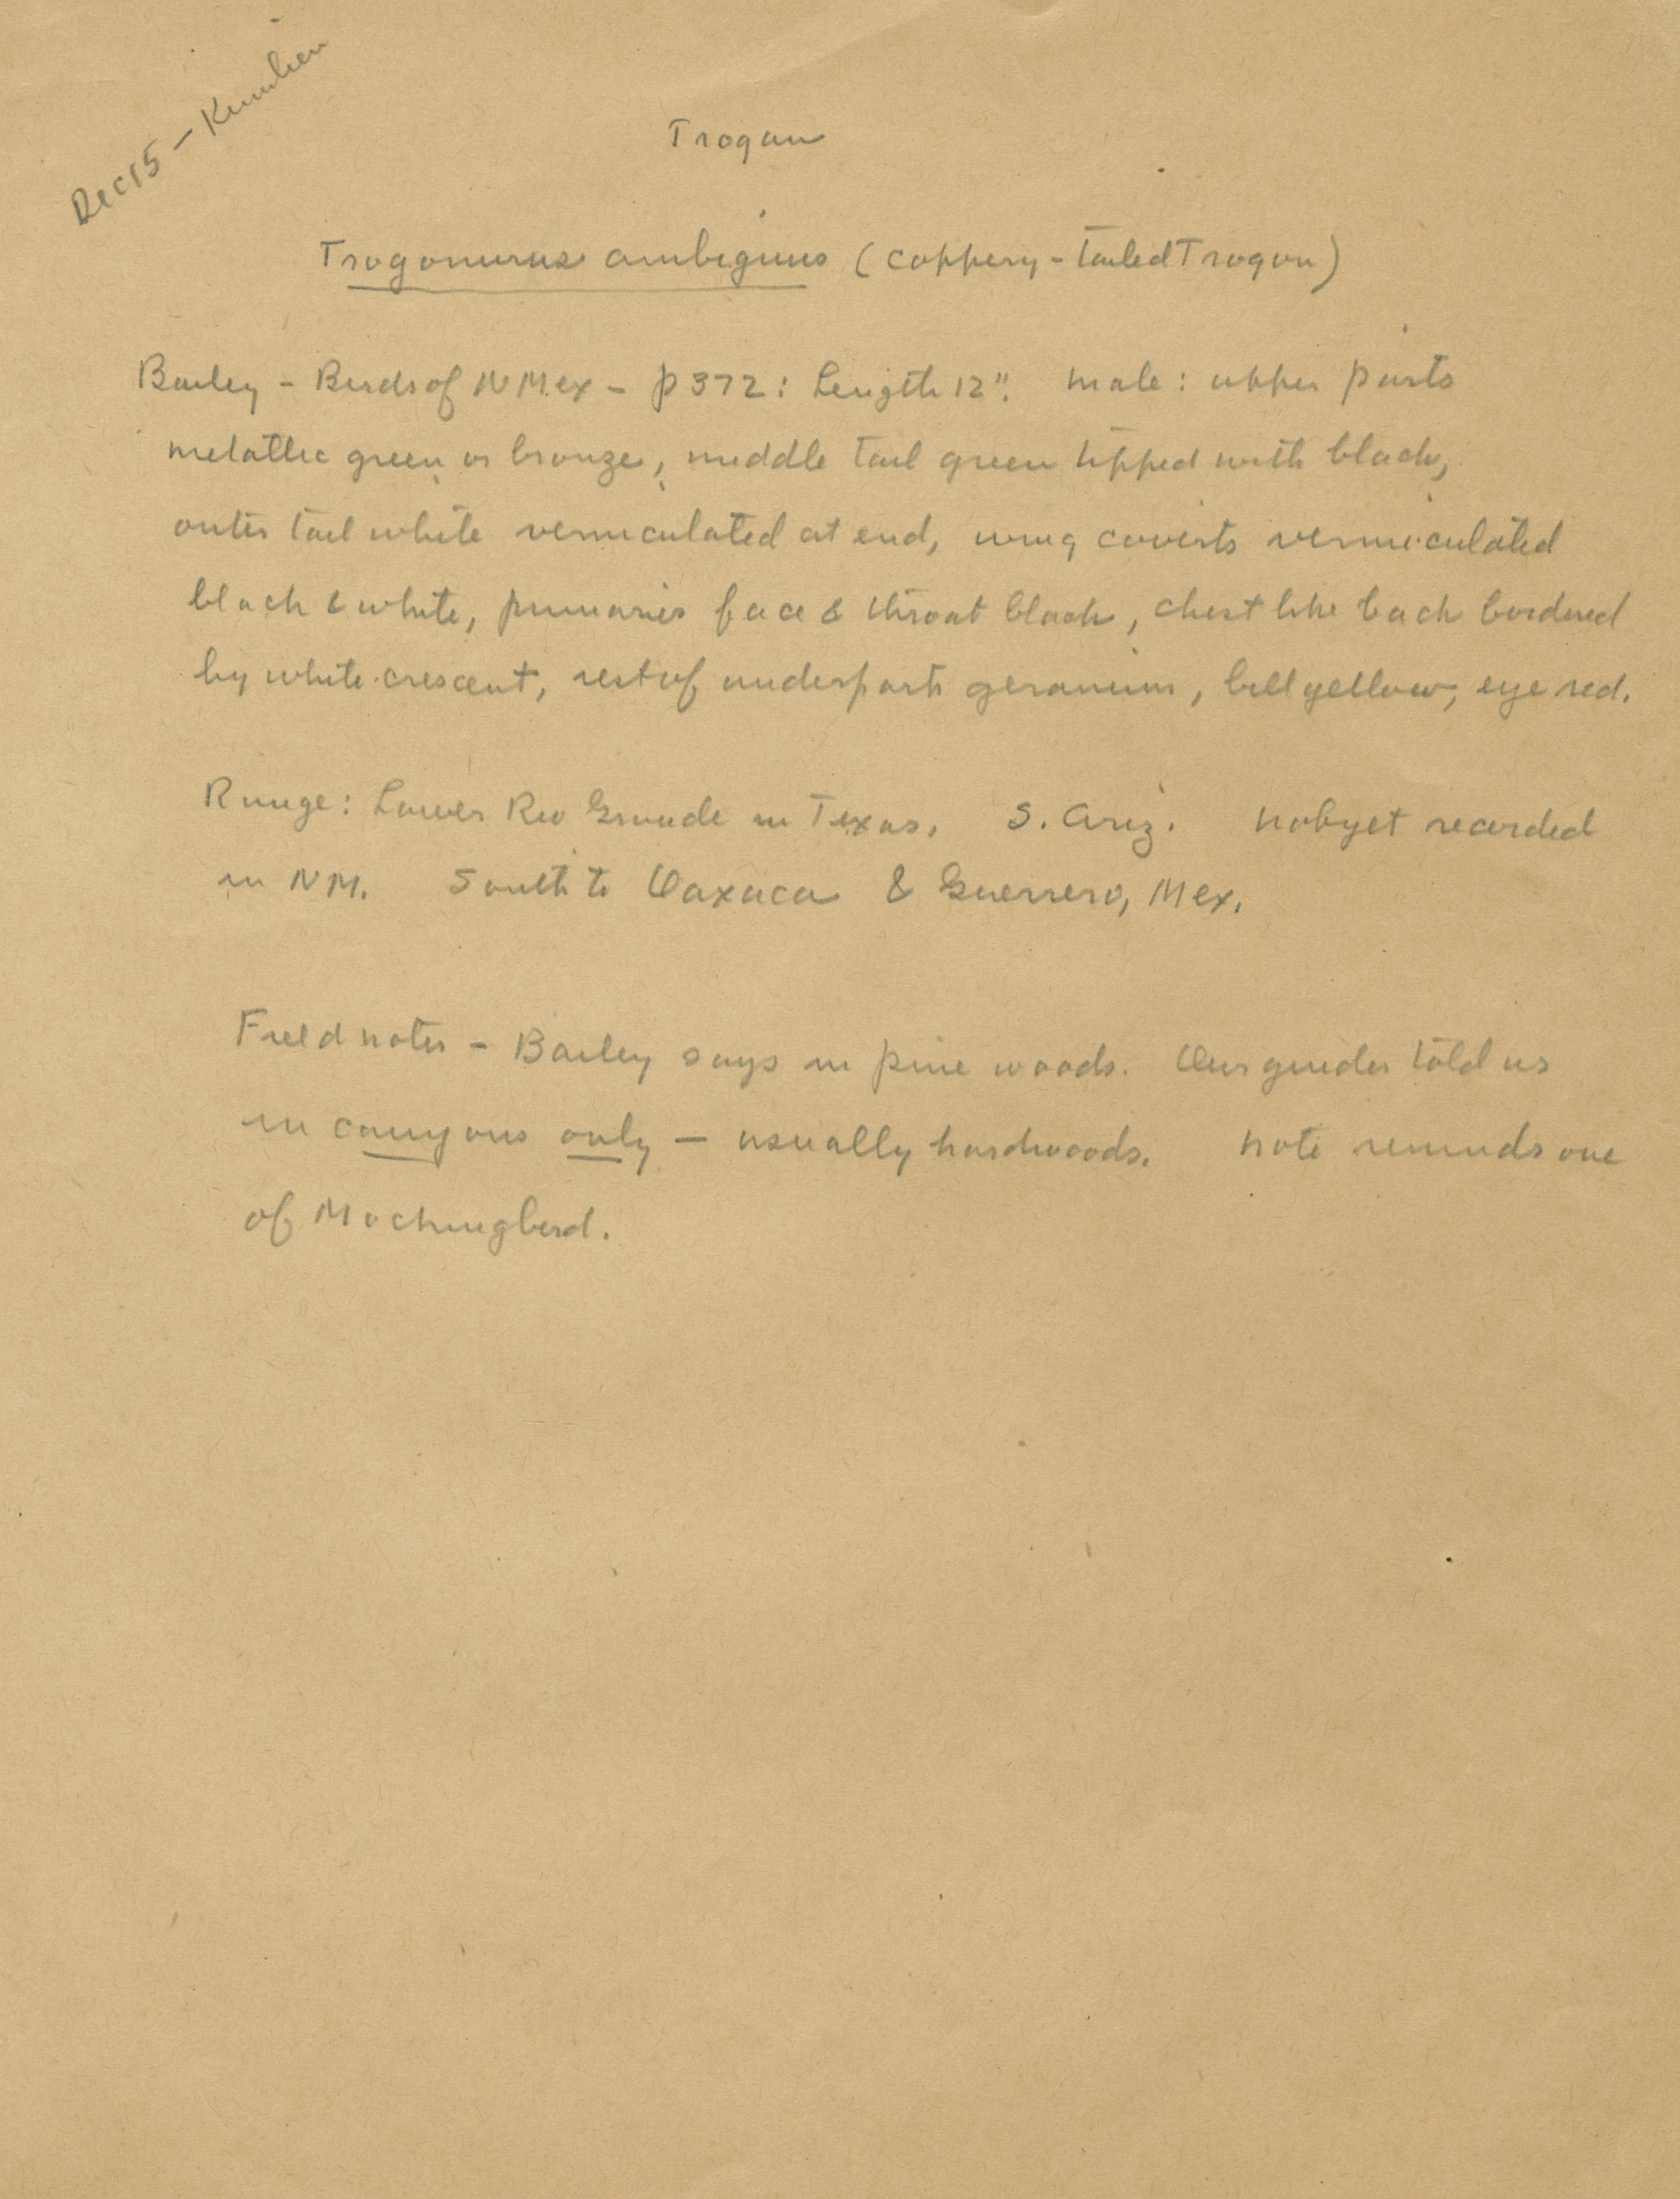 Dec 15 - Kumlien
Trogon
Trogonurus ambiguus (coppery-tailed Trogon)
Bailey - Birds of N Mex - p 372: Length 12". male: upper parts
metallic green or bronze, middle tail green tipped with black,
outer tail white vermiculated at end, wing coverts vermiculated
black & white, primaries face & throat black, chest like back bordered
by white crescent, rest of underparts geranium, bill yellow, eye red.
Range: Lower Rio Grande in Texas, S. Ariz. not yet recorded
in NM. South to Oaxaca & Guerrero, Mex.
Field notes - Bailey says in pine woods. Our guides told us
in canyons only - usually hardwoods. note reminds one
of Mockingbird.